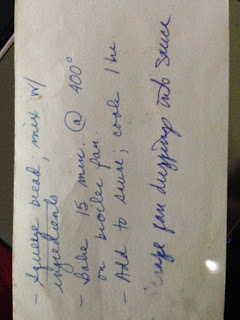 - Squeeze bread, mix w/
ingredients
- Bake 15 min. @ 400°
on broiler pan.
- Add to sauce; cook 1 hr.
pan drippings into sauce